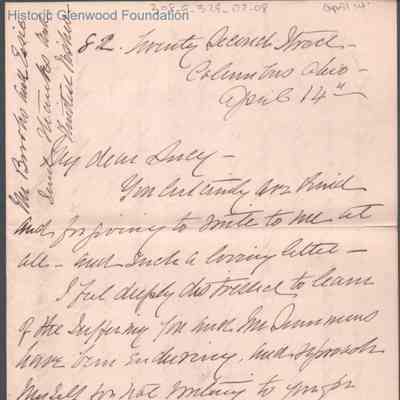 Historic Glenwood Foundation
308-S-328_02-08
April 14
82. Twenty Second Street -
Columbus Ohio -
April 14th
My dear Lucy -
You certainly are kind
and forgiving to write to me at
all - and such a loving letter -
I feel deeply distressed to learn
of the suffering you and Mr Simmons
have been enduring, and reproach
myself for not writing to you
Mr Brooks and
send thanks and
kindest wishes